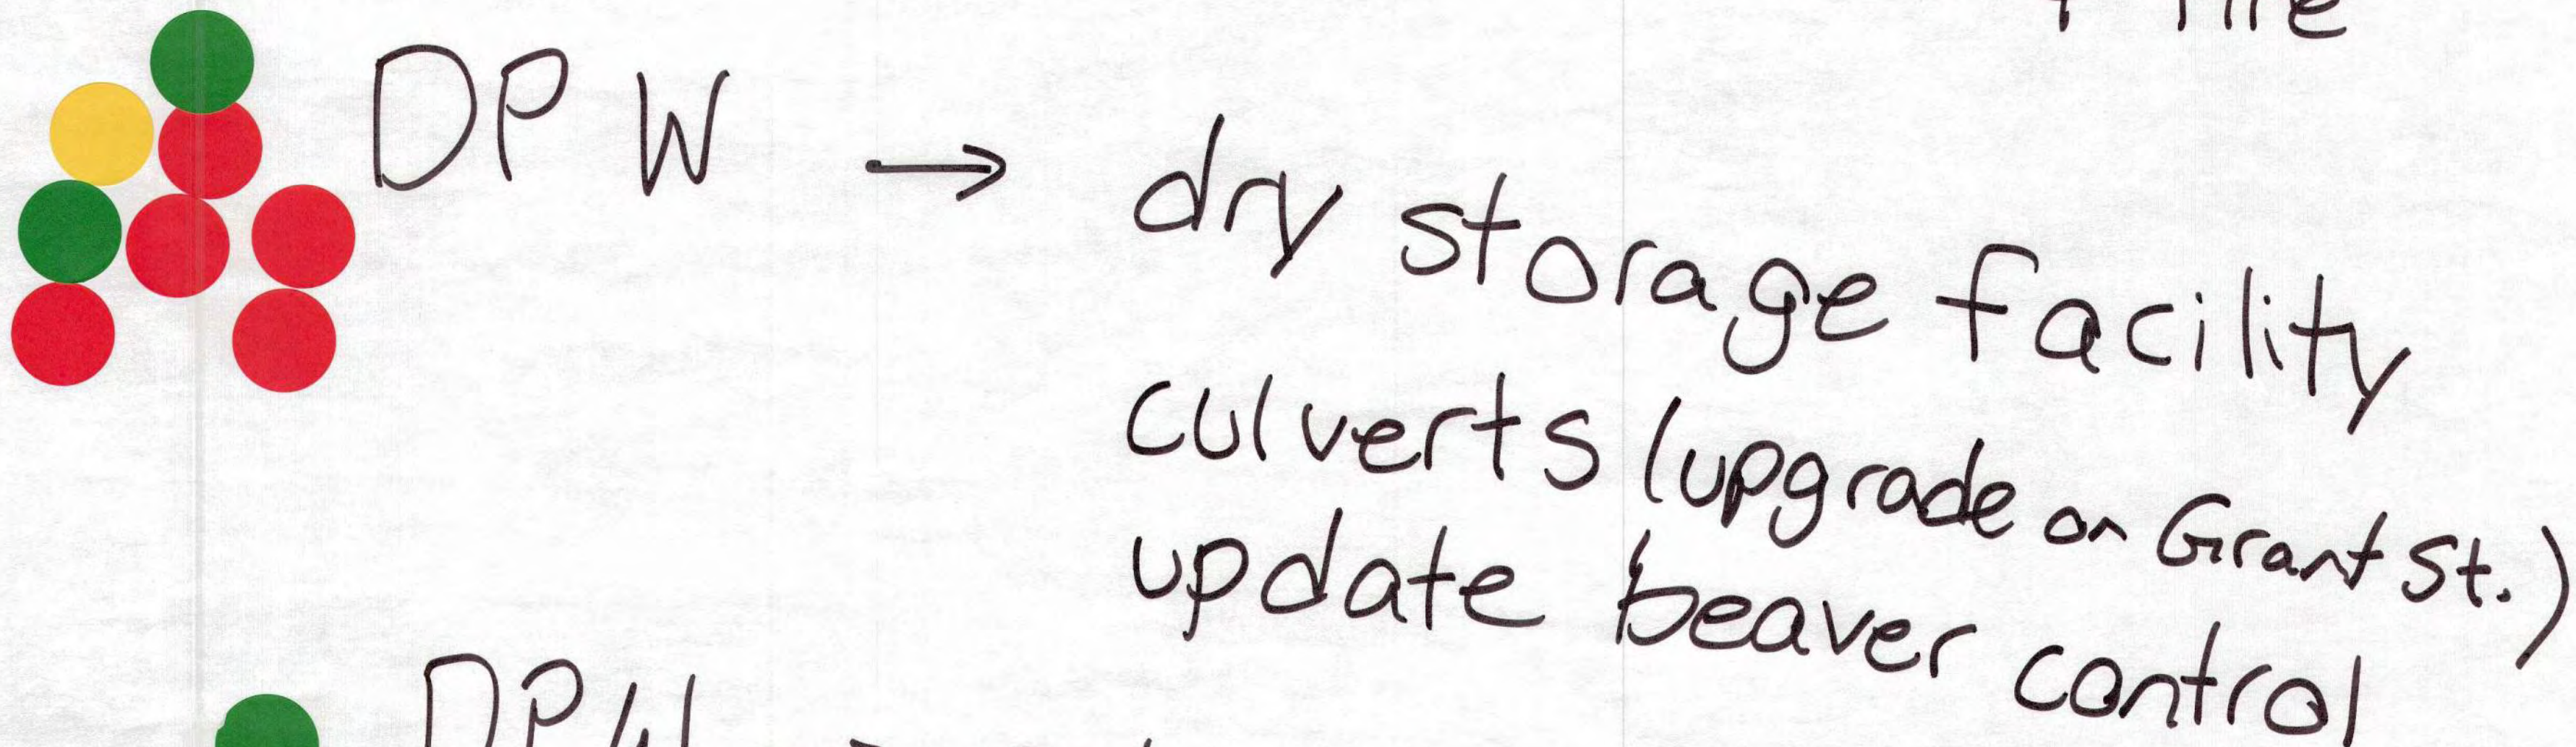 DPW → dry storage facility
culverts (upgrade on Grant St.)
update beaver control
DPW